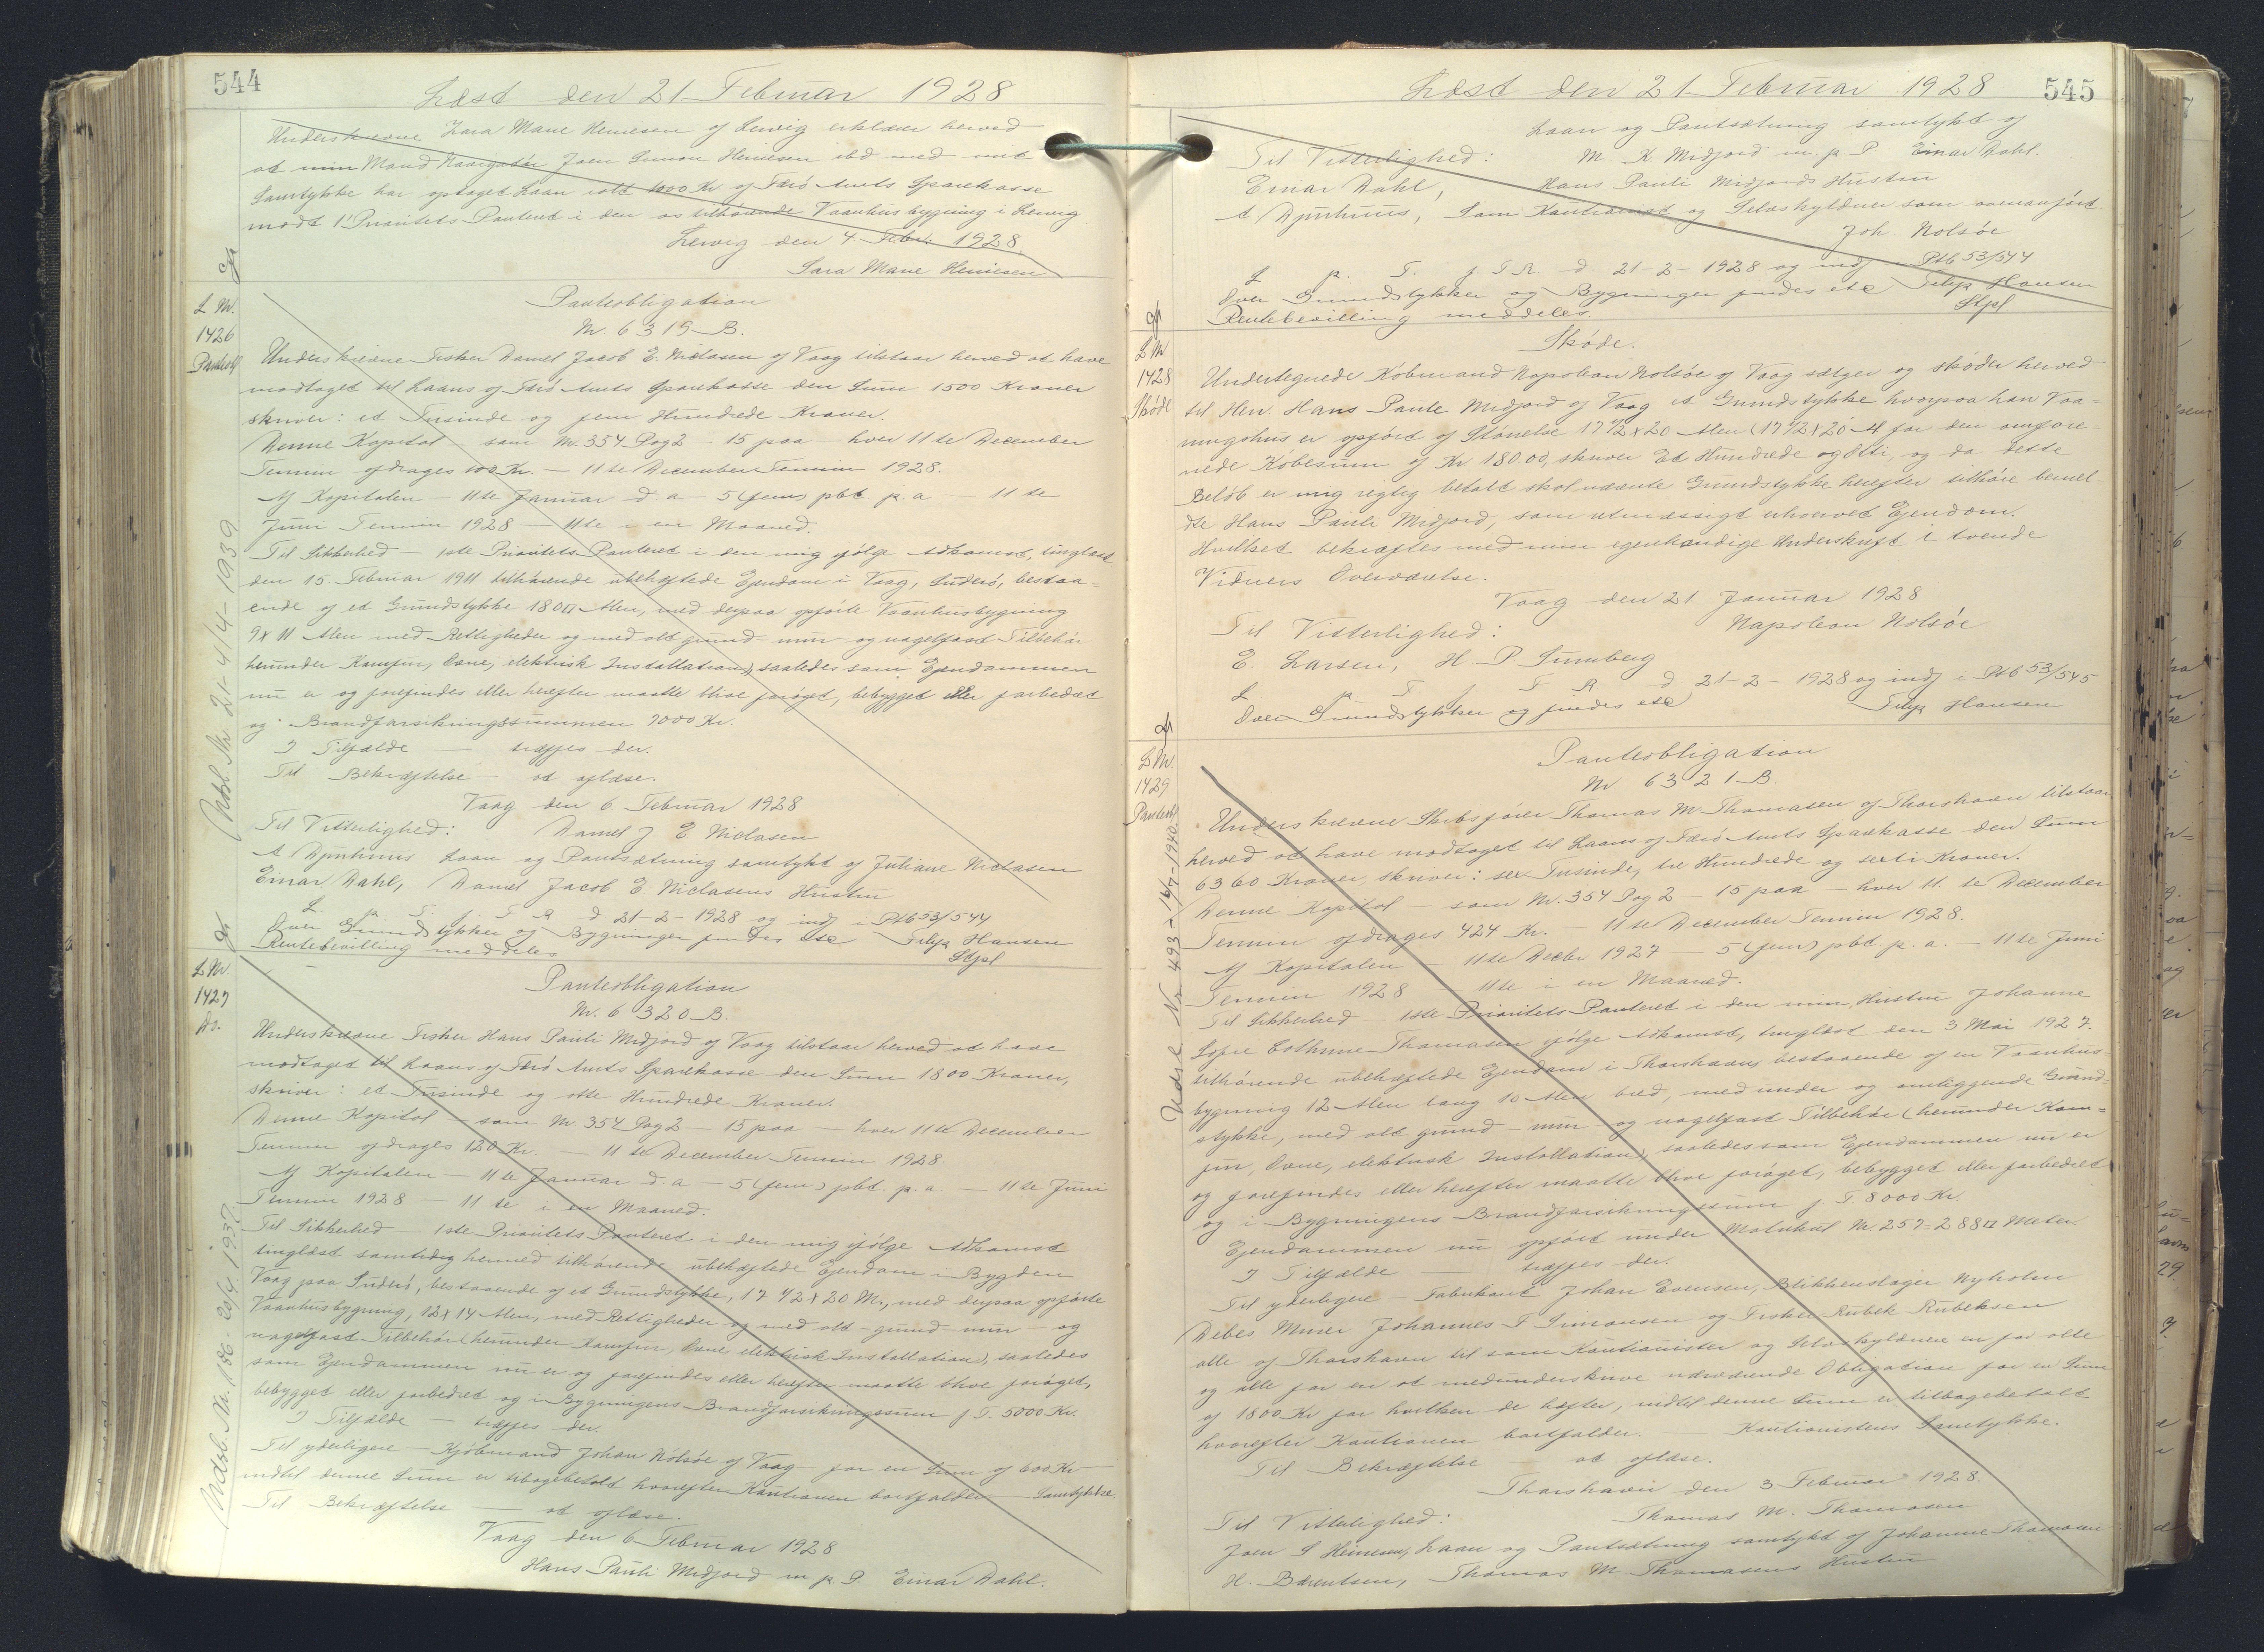 544
Læst den 21 Februar 1928
Underskrevne Sara Marie Heinesen af Lervig erklærer herved
at min Mand Navigatör Joen Simon Heinesen ibd med mit
Samtykke har optaget Laan stort 1000 Kr. af Færö Amts Sparekasse
modt 1' Prioritets Panteret i den os tilhørende Vaanhusbygning i Lervig
Lervig den 4 Febr. 1928.
Sara Marie Heinesen
L Nr.
1426
Panteobl
Panteobligation
Nr. 6319 B.
Underskrevne Fisker Daniel Jacob E. Niclasen af Vaag tilstaar herved at have
modtaget til Laans af Færö Amts Sparekasse den Sum 1500 Kroner
skriver: et Tusinde og fem Hundrede Kroner.
Denne Kapital – som Nr. 354 Pag 2 – 15 paa – hver 11te December
Termin afdrages 100 Kr. – 11te December Termin 1928.
Af Kapitalen – 11te Januar d. a – 5 (fem) pbt. p. a – 11te
Juni Termin 1928 – 11te i en Maaned.
Til Sikkerhed – 1ste Prioritets Panteret i den mig ifølge Adkomst, tinglæst
den 15 Februar 1911 tilhørende ubehæftede Ejendom i Vaag, Suderö, bestaa-
ende af et Grundstykke 180 □ Alen, med derpaa opførte Vaanhusbygning
9 x 11 Alen med Rettigheder og med alt grund- mur- og nagelfast Tilbehør
herunder Komfur, Ovne, elektrisk Installation), saaledes som Ejendommen
nu er og forefindes eller herefter maatte blive forøget, bebygget eller forbedret
og i Brandforsikringssummen 7000 Kr.
I Tilfælde – træffes der.
Til Bekræftelse – at aflæse.
Vaag den 6 Februar 1928
Til Vitterlighed: Daniel J E Niclasen
A Djurhuus Laan og Pantsætning samtykt af Juliane Niclasen
Einar Dahl, Daniel Jacob E Niclasens Hustru
L p. T. f T R d 21-2-1928 og indf i Ptb 53/544
Over Grundstykker og Bygninger findes etc Filip Hansen
Rentebevilling meddeles Stpl
Udsl. Nr. 21-4/4-1939
L Nr.
1427
Do.
Panteobligation
Nr. 6320 B.
Underskrevne Fisker Hans Pauli Midjord af Vaag tilstaar herved at have
modtaget til Laans af Færö Amts Sparekasse den Sum 1800 Kroner,
skriver: et Tusinde og otte Hundrede Kroner.
Denne Kapital – som Nr 354 Pag 2 – 15 paa – hver 11te December
Termin afdrages 120 Kr. – 11te December Termin 1928.
Af Kapitalen – 11te Januar d. a – 5 (fem) pbt. p. a – 11te Juni
Termin 1928 – 11te i en Maaned.
Til Sikkerhed – 1ste Prioritets Panteret i den mig ifølge Adkomst
tinglæst samtidig hermed tilhørende ubehæftede Ejendom i Bygden
Vaag paa Suderö, bestaaende af et Grundstykke, 17 1/2 x 20 Al., med derpaa opførte
Vaanhusbygning, 12 x 14 Alen, med Rettigheder og med alt – grund- mur- og
nagelfast Tilbehør (herunder Komfur, Ovne elektrisk Installation), saaledes
som Ejendommen nu er og forefindes eller herefter maatte blive forøget,
bebygget eller forbedret og i Bygningens Brandforsikringssum f T. 5000 Kr.
I Tilfælde – træffes der.
Til yderligere – Kjøbmand Johan Nolsöe af Vaag – for en Sum af 600 Kr
indtil denne Sum er tilbagebetalt hvorefter Kautionen bortfalder – Samtykke.
Til Bekræftelse – at aflæse.
Vaag den 6 Februar 1928
Hans Pauli Midjord m p. P. Einar Dahl.
Udsl. Nr. 186-20/4 1937
545
Læst den 21 Februar 1928
Laan og Pantsætning samtykt af
Til Vitterlighed: M. K Midjord m. p. P Einar Dahl.
Einar Dahl, Hans Pauli Midjords Hustru
A Djurhuus, Som Kautionist og Selvskyldner som ovenanført
Joh Nolsöe
L p. T. f T R. d. 21-2-1928 og indf Ptb 53/544
Over Grundstykker og Bygninger findes etc Filip Hansen
Rentebevilling meddeles. Stpl
L Nr
1428
Sköde
Sköde.
Undertegnede Köbmand Napoleon Nolsöe af Vaag sælger og sköder herved
til Herr. Hans Paule Midjord af Vaag et Grundstykke hvorpaa han Vaa-
ningshus er opført af Störrelse 17 1/2 x 20 Alen (17 1/2 x 20 Al for den omfore-
nede Köbesum af Kr 180.00, skriver Et Hundrede og Otti, og da dette
Belöb er mig rigtig betalt skal nævnte Grundstykke herefter tilhöre bemel-
dte Hans Pauli Midjord, som retmæssigt erhvervet Ejendom.
Hvilket bekræftes med min egenhændige Underskrift i tvende
Vidners Overværelse.
Vaag den 21 Januar 1928
Til Vitterlighed: Napoleon Nolsöe
E. Larsen, H. P. Sumberg
L p. T f T R d 21-2-1928 og indf i Ptb 53/545
Over Grundstykker og findes etc Filip Hansen
L Nr.
1429
Panteobl
Panteobligation
Nr 6321 B.
Underskrevne Skibsfører Thomas M. Thomasen af Thorshavn tilstaar
herved at have modtaget til Laans af Færö Amts Sparekasse den Sum
6360 Kroner, skriver: sex Tusinde, tre Hundrede og sexti Kroner.
Denne Kapital – som Nr. 354 Pag 2 – 15 paa – hver 11.te December
Termin afdrages 424 Kr. – 11te December Termin 1928.
Af Kapitalen – 11te Decbr 1927 – 5 (fem) pbt p. a. – 11te Juni
Termin 1928 – 11te i en Maaned.
Til Sikkerhed 1ste Prioritets Panteret i den min Hustru Johanne
Sofie Cathrine Thomasen ifølge Adkomst, tinglæst den 3 Mai 1927.
tilhørende ubehæftede Ejendom i Thorshavn, bestaaende af en Vaanhus-
bygning 12 Alen lang 10 Alen bred, med under og omliggende Grund-
stykke, med alt grund- mur- og nagelfast Tilbehør (herunder Kom-
fur, Ovne, elektrisk Installation), saaledes som Ejendommen nu er
og forefindes eller herefter maatte blive forøget, bebygget eller forbedret
og i Bygningens Brandforsikringssum f T. 8000 Kr.
Ejendommen nu opført under Matrikul Nr. 257=288 □ Meter.
I Tilfælde – træffes der.
Til yderligere – Fabrikant Johan Evensen, Blikkenslager Nyholm
Debes Murer Johannes P Simonsen og Fisker Rubek Rubeksen
alle af Thorshavn til som Kautionister og Selvskyldnere en for alle
og alle for en at medunderskrive nærværende Obligation for en Sum
af 1800 Kr for hvilken de hæfter, indtil denne Sum er tilbagebetalt
hvorefter Kautionen bortfalder. – Kautionistens Samtykke.
Til Bekræftelse at aflæse.
Thorshavn den 3 Februar 1928.
Til Vitterlighed: Thomas M. Thomasen
Joen S Heinesen, Laan og Pantsætning samtykt af Johanne Thomasen
H. Bærentsen, Thomas M. Thomasens Hustru
Udsl Nr 493-14/7-1940.